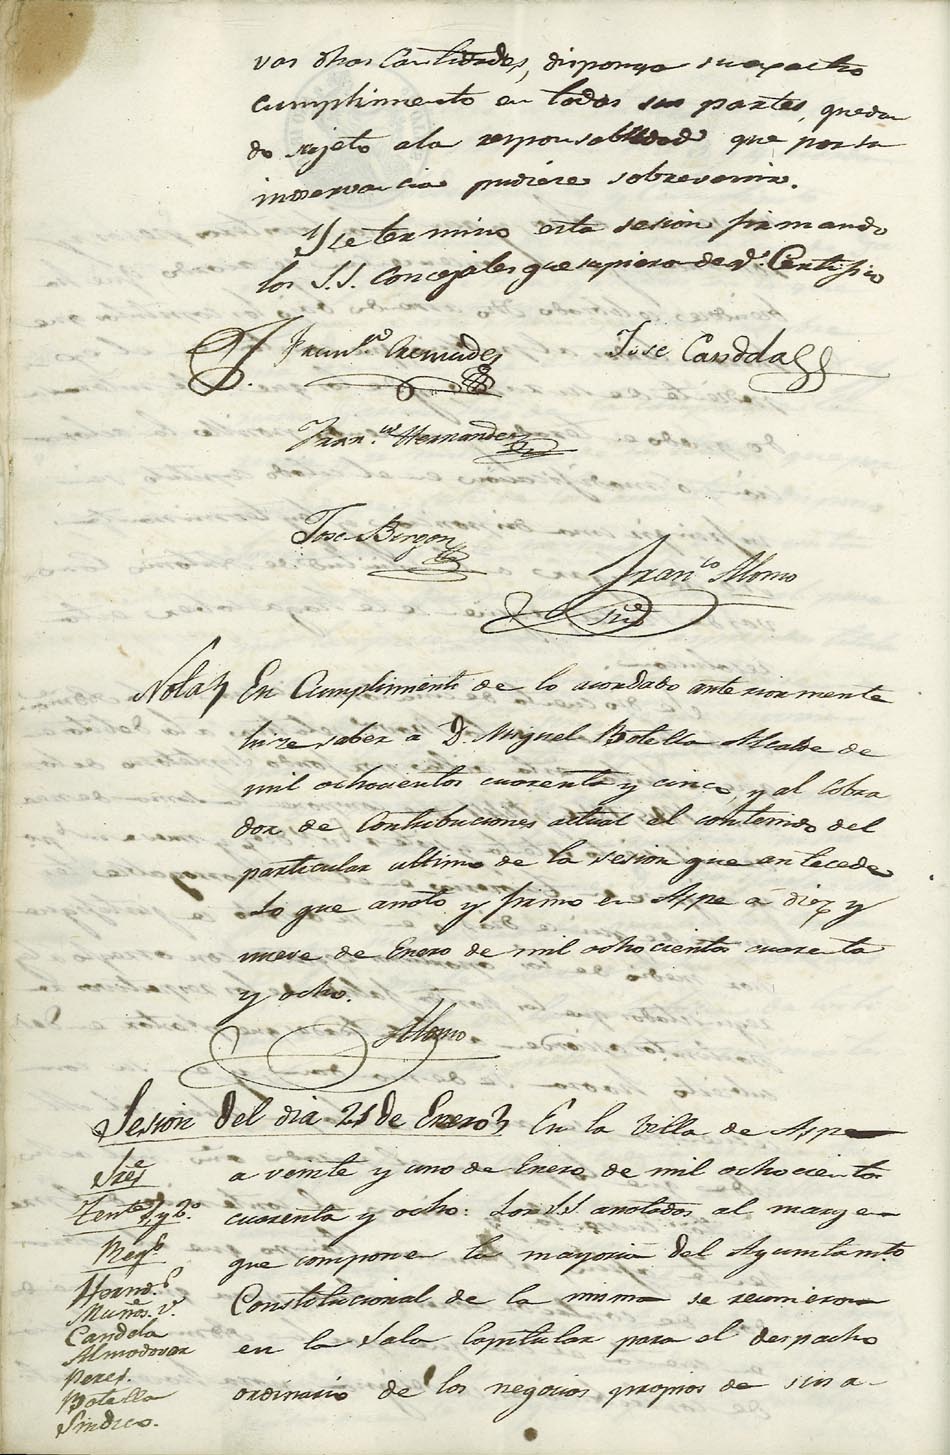 vas dhas Cantidades, disponga su exacto
cumplimiento en todas sus partes, quedan
do sujeto a la responsabilidad que por su
inoservancia pudiere sobrevenir.
Y se termino esta sesion firmando
los S.S. Concejales que supieron de q.e Certifico
Fran.co Cremades
Jose Candela
Fran.co Hernandez
Jose
Fran.co Alonso
Srio
Nota En Cumplimiento de lo acordado anteriormente
hize saber a D. Miguel Botella Alcalde de
mil ochocientos cuarenta y cinco, y al Cobra
dor de Contribuciones actual el contenido del
particular ultimo de la sesion que antecede
Lo que anoto y firmo en Aspe a diez y
nueve de Enero de mil ochocientos cuarenta
y ocho.
Alonso
Sesion del dia 21 de Enero En la Villa de Aspe
Sres
a veinte y uno de Enero de mil ochocientos
Tentes 1o y 2o.
cuarenta y ocho: Los SS. anotados al margen
Regs
que componen la mayoria del Ayuntamto
Hernz.
Muños. v.
Constitucional de la misma se reunieron
Candela
Almodovar
en la Sala Capitular para el despacho
Peres.
Botella
ordinario de los negocios propios de sus a-
Sindico.